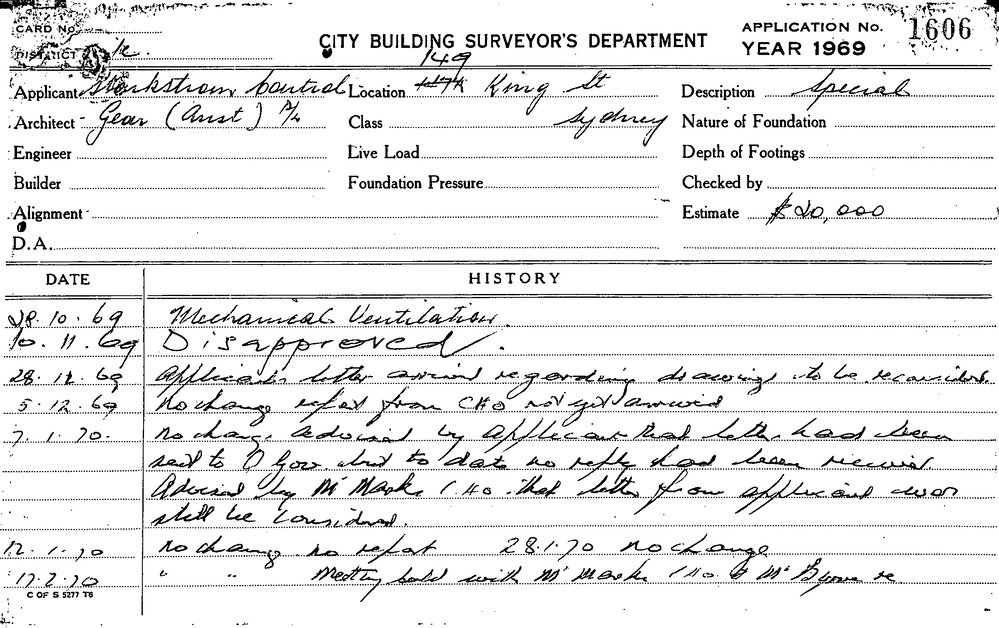 CARD No.
DISTRICT
CITY BUILDING SURVEYOR'S DEPARTMENT
APPLICATION No. 1606
YEAR 1969
149
Applicant Control Location 117A King St Description Special
Architect Gear (Aust) P/L Class Sydney Nature of Foundation
Engineer Live Load Depth of Footings
Builder Foundation Pressure Checked by
Alignment Estimate $20,000
D.A.
DATE HISTORY
28.10.69 Mechanical Ventilation.
10.11.69 Disapproved.
28.12.69 Applicants letter arrived regarding drawings to be reconsidered.
5.12.69 No change report from CHO not yet arrived
7.1.70. No change. Advised by Applicant that letter had been
sent to O Gov. but to date no reply had been received.
Advised by Mr Marks CHO that letter from applicant was
still be considered.
12.1.70 no change no report 28.1.70 no change
17.2.70 " " Meeting held with Mr Marks CHO & Mr re
C OF S 5277 T6